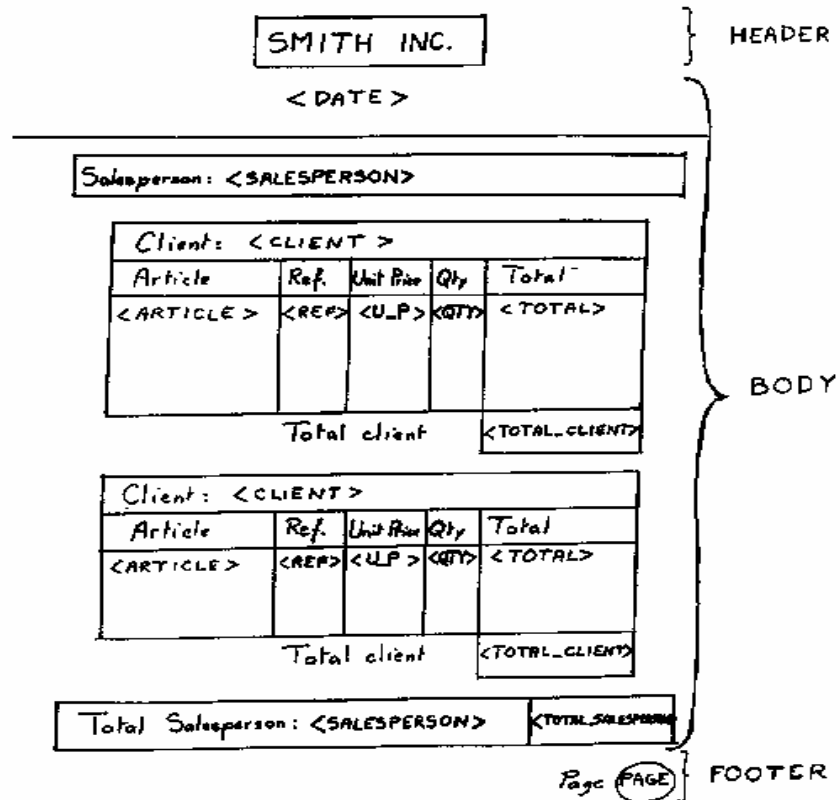 SMITH INC.
HEADER
<DATE>
Salesperson: <SALESPERSON>
Client: <CLIENT>
Article Ref. Unit Price Qty Total
<ARTICLE> <REF> <U_P> <QTY> <TOTAL>
BODY
Total client <TOTAL_CLIENT>
Client: <CLIENT>
Article Ref. Unit Price Qty Total
<ARTICLE> <REF> <U_P> <QTY> <TOTAL>
Total client <TOTAL_CLIENT>
Total Salesperson: <SALESPERSON> <TOTAL_SALESPERSON>
Page PAGE
FOOTER